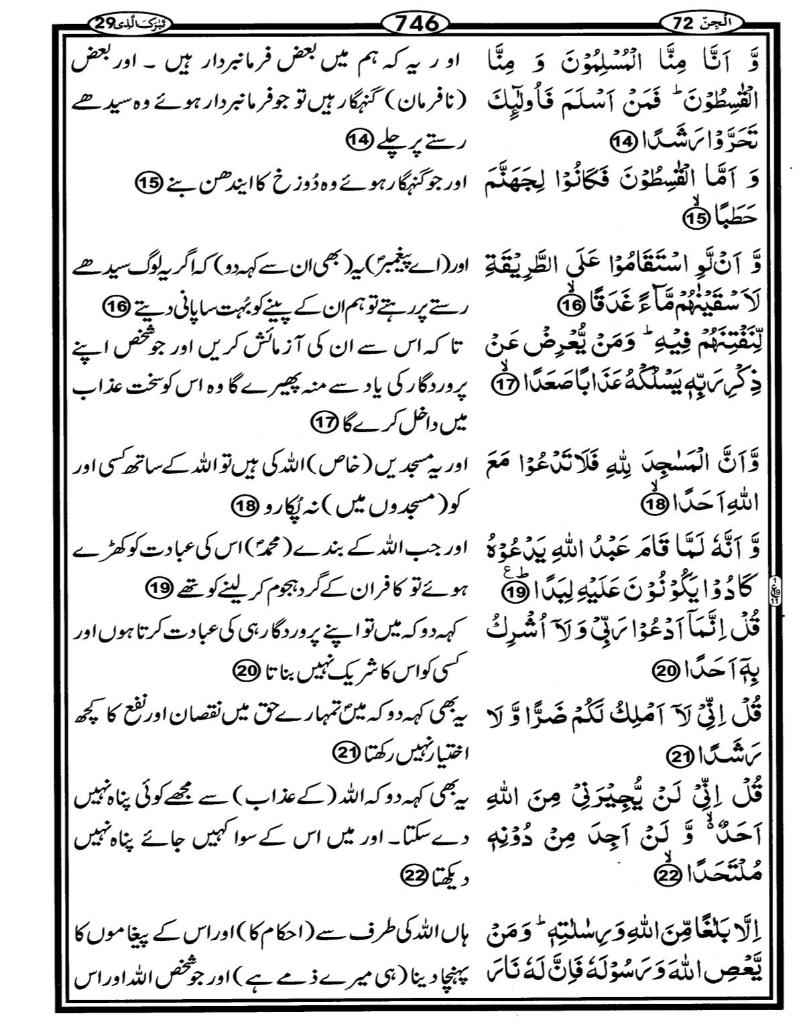 الۡجِنّ 72
746
تَبٰرَكَ الَّذِىۡ 29
وَّ اَنَّا مِنَّا الۡمُسۡلِمُوۡنَ وَ مِنَّا
الۡقٰسِطُوۡنَ‌ؕ فَمَنۡ اَسۡلَمَ فَاُولٰٓٮِٕكَ
تَحَرَّوۡا رَشَدًا ۝14
وَ اَمَّا الۡقٰسِطُوۡنَ فَكَانُوۡا لِجَهَنَّمَ
حَطَبًا ۙ‏ ۝15
وَّ اَنۡ لَّوِ اسۡتَقَامُوۡا عَلَى الطَّرِيۡقَةِ
لَاَسۡقَيۡنٰهُمۡ مَّآءً غَدَقًا ۙ‏ ۝16
لِّنَفۡتِنَهُمۡ فِيۡهِ‌ؕ وَمَنۡ يُّعۡرِضۡ عَنۡ
ذِكۡرِ رَبِّهٖ يَسۡلُكۡهُ عَذَابًا صَعَدًا ۙ‏ ۝17
وَّاَنَّ الۡمَسٰجِدَ لِلّٰهِ فَلَا تَدۡعُوۡا مَعَ
اللّٰهِ اَحَدًا ۙ‏ ۝18
وَّ اَنَّهٗ لَمَّا قَامَ عَبۡدُ اللّٰهِ يَدۡعُوۡهُ
كَادُوۡا يَكُوۡنُوۡنَ عَلَيۡهِ لِبَدًا ؕ ع ۝19
قُلۡ اِنَّمَاۤ اَدۡعُوۡا رَبِّىۡ وَلَاۤ اُشۡرِكُ
بِهٖۤ اَحَدًا ۝20
قُلۡ اِنِّىۡ لَاۤ اَمۡلِكُ لَكُمۡ ضَرًّا وَّلَا
رَشَدًا ۝21
قُلۡ اِنِّىۡ لَنۡ يُّجِيۡرَنِىۡ مِنَ اللّٰهِ
اَحَدٌ ۙ وَّ لَنۡ اَجِدَ مِنۡ دُوۡنِهٖ
مُلۡتَحَدًا ۙ‏ ۝22
اِلَّا بَلٰغًا مِّنَ اللّٰهِ وَرِسٰلٰتِهٖ‌ؕ وَمَنۡ
يَّعۡصِ اللّٰهَ وَرَسُوۡلَهٗ فَاِنَّ لَهٗ نَارَ
اور یہ کہ ہم میں بعض فرمانبردار ہیں ۔ اور بعض
(نافرمان) گنہگار ہیں تو جو فرمانبردار ہوئے وہ سیدھے
رستے پر چلے ۝14
اور جو گنہگار ہوئے وہ دُوزخ کا ایندھن بنے ۝15
اور (اے پیغمبرؐ) یہ (بھی ان سے کہہ دو) کہ اگر یہ لوگ سیدھے
رستے پر رہتے تو ہم ان کے پینے کو بُہت سا پانی دیتے ۝16
تا کہ اس سے ان کی آزمائش کریں اور جو شخص اپنے
پروردگار کی یاد سے منہ پھیرے گا وہ اس کو سخت عذاب
میں داخل کرے گا ۝17
اور یہ مسجدیں (خاص) اللہ کی ہیں تو اللہ کے ساتھ کسی اور
کو (مسجدوں میں) نہ پُکارو ۝18
اور جب اللہ کے بندے (محمدؐ) اس کی عبادت کو کھڑے
ہوئے تو کافر ان کے گرد ہجوم کر لینے کو تھے ۝19
کہہ دو کہ میں تو اپنے پروردگار ہی کی عبادت کرتا ہوں اور
کسی کو اس کا شریک نہیں بناتا ۝20
یہ بھی کہہ دو کہ میں تمہارے حق میں نقصان اور نفع کا کچھ
اختیار نہیں رکھتا ۝21
یہ بھی کہہ دو کہ اللہ (کے عذاب) سے مجھے کوئی پناہ نہیں
دے سکتا۔ اور میں اس کے سوا کہیں جائے پناہ نہیں
دیکھتا ۝22
ہاں اللہ کی طرف سے (احکام کا) اور اس کے پیغاموں کا
پہنچا دینا (ہی میرے ذمے ہے) اور جو شخص اللہ اور اس